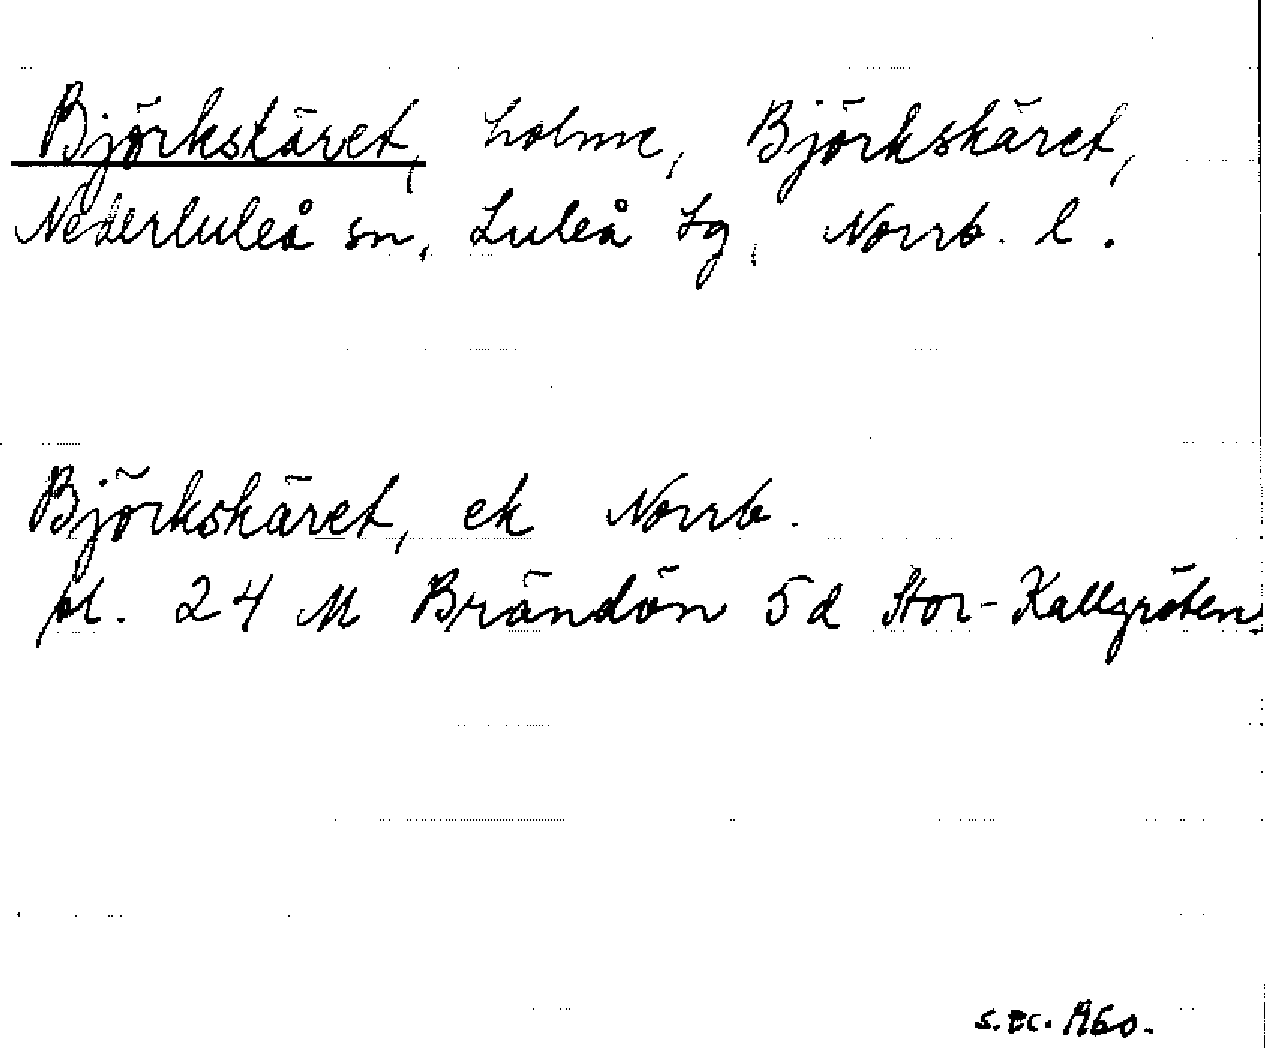 Björkskäret, holme, Björkskäret,
Nederluleå sn, Luleå tg, Norrb. l.
Björkskäret, ek Norrb.
bl. 24 M Brändön 5d Stor-Kallgröten